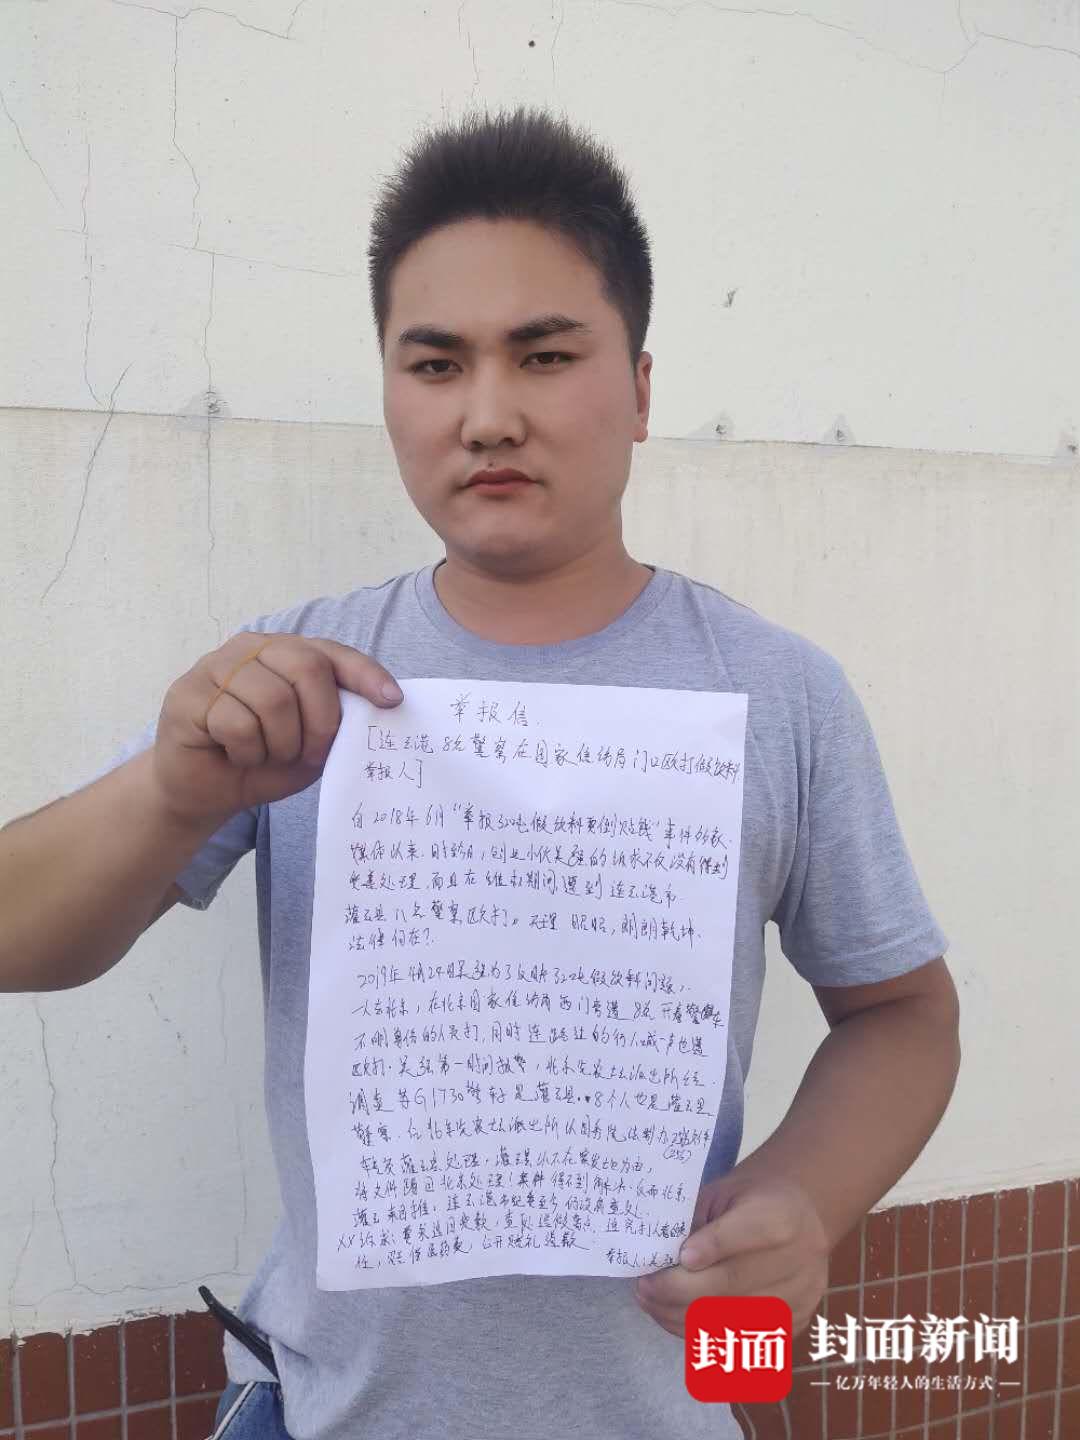 举报信.
[连云港8名警察在国家信访局门口殴打假饮料
举报人]
自2018年6月“举报320吨假饮料要倒贴钱”事件
媒体以来.时至今日,创业小伙吴强的诉求不仅没有得到
妥善处理,而且在维权期间,遭到连云港市
灌云县八名警察殴打。天理昭昭,朗朗乾坤.
法律何在?
2019年4月24日吴强为了反映320吨假饮料问题,
一人去北京,在北京国家信访局西门旁遭8名开着警车
不明身份的人员打,同时连路过的行人喊一声也遭
殴打.吴强第一时间报警,北京先农坛派出所经
调查苏G1730警车是灌云县.8个人也是灌云县
警察.但北京先农坛派出所以国务院法制办
转交灌云县处理,灌云县以不在案发地为由,
将文件踢回北京处理!案件得不到解决.反而北京
灌云相推,连云港市纪委至今仍没有查处.
诉求:要求退回货款,查处造假窝点.追究打人者的责
任,赔偿医药费,公开赔礼道歉
举报人:吴强
封面
封面新闻
亿万年轻人的生活方式